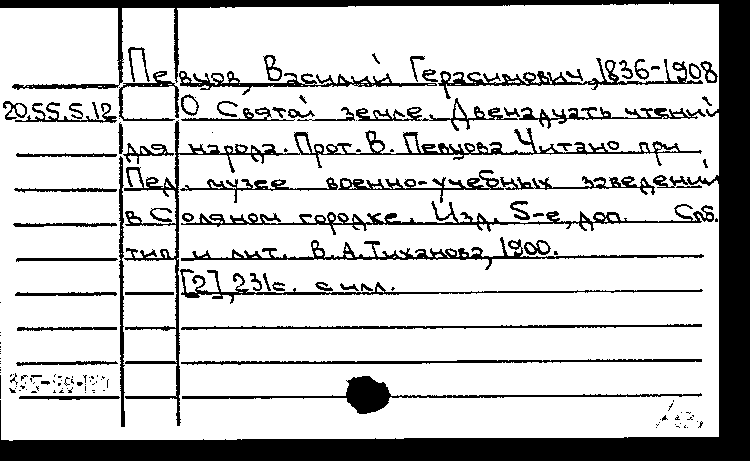 Певцов, Василий Герасимович, 1836-1908
20.55.5.12 О Святой земле. Двенадцать чтений
для народа. Прот. В. Певцова. Читано при
Пед. музее военно-учебных заведений
в Соляном городке. Изд. 5-е, доп. Спб.
тип. и лит. В. А. Тиханова, 1900.
[2], 231с. с илл.